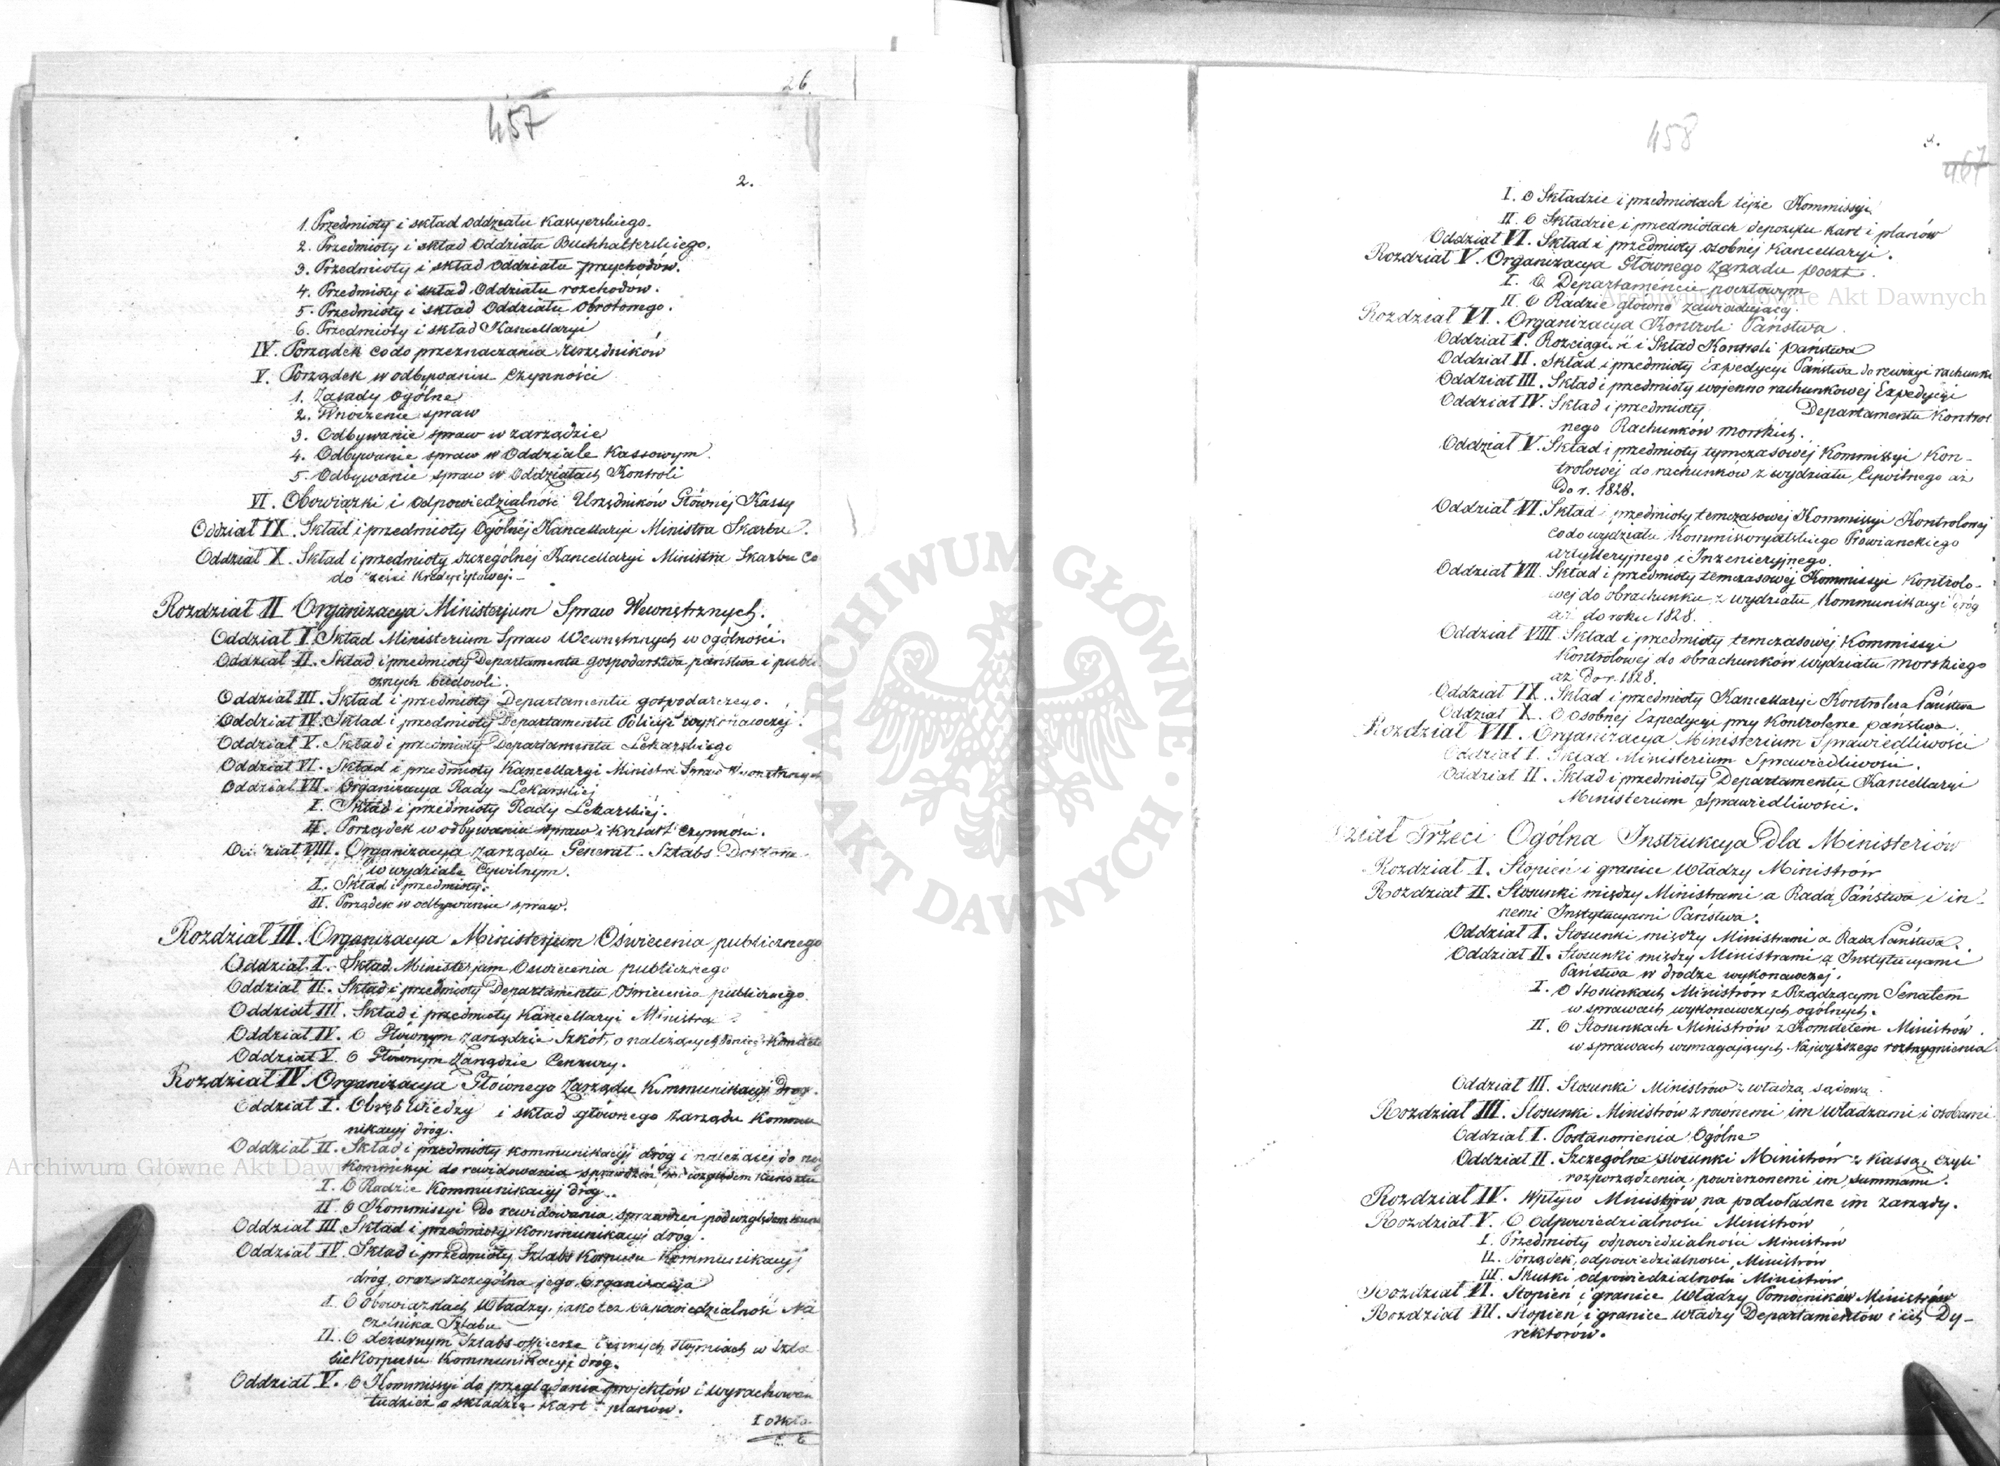 26.
457
2.
1. Przedmioty i skład oddziału Kassyerskiego.
2. Przedmioty i skład Oddziału Buchhalterskiego.
3. Przedmioty i skład Oddziału przychodów.
4. Przedmioty i skład Oddziału rozchodów.
5. Przedmioty i skład Oddziału Obrotowego.
6. Przedmioty i skład Kancellaryi
IV. Porządek co do przeznaczania Urzędników
V. Porządek w odbywaniu Czynności
1. Zasady Ogólne
2. Wnoszenie spraw
3. Odbywanie spraw w zarządzie
4. Odbywanie spraw w Oddziale Kassowym.
5. Odbywanie spraw w Oddziałach Kontroli
VI. Obowiązki i Odpowiedzialność Urzędników Głównej Kassy
Oddział IX. Skład i przedmioty Ogólnej Kancellaryi Ministra Skarbu.
Oddział X. Skład i przedmioty szczególnej Kancellaryi Ministra Skarbu co
do części Kredytowej.
Rozdział II Organizacya Ministerjum Spraw Wewnętrznych.
Oddział I. Skład Ministerium Spraw Wewnętrznych w ogólności.
Oddział II. Skład i przedmioty Departamentu gospodarstwa państwa i publi
cznych budowli.
Oddział III. Skład i przedmioty Departamentu gospodarczego.
Oddział IV. Skład i przedmioty Departamentu Policyi wykonawczej.
Oddział V. Skład i przedmioty Departamentu Lekarskiego
Oddział VI. Skład i przedmioty Kancellaryi Ministra Spraw Wewnętrznych
Oddział VII. Organizacya Rady Lekarskiej
I. Skład i przedmioty Rady Lekarskiej.
II. Porządek w odbywaniu spraw i kształt Czynności.
Oddział VIII. Organizacya Zarządu Generał-Sztabs-Doktora
w wydziale Cywilnym.
I. Skład i przedmioty.
II. Porządek w odbywaniu spraw.
Rozdział III. Organizacya Ministerjum Oświecenia publicznego
Oddział I. Skład Ministerjum Oświecenia publicznego
Oddział II. Skład i przedmioty Departamentu Oświecenia publicznego.
Oddział III. Skład i przedmioty Kancellaryi Ministra
Oddział IV. O Głównym Zarządzie Szkół, o należącym do niego Komitecie
Oddział V. O Głównym Zarządzie Cenzury.
Rozdział IV. Organizacya Głównego Zarządu Kommunikacyj dróg.
Oddział I. Obręb Wiedzy i skład głównego Zarządu Kommu
nikacyj dróg.
Oddział II. Skład i przedmioty Kommunikacyj dróg i należącej do niej
Kommissyi do rewidowania sprawdzeń pod względem kunsztu
I. O Radzie Kommunikacyj dróg.
II. O Kommissyi do rewidowania sprawdzeń pod względem
Oddział III. Skład i przedmioty Kommunikacyj dróg.
Oddział IV. Skład i przedmioty Sztabs Korpusu Kommunikacyj
dróg, oraz szczególna jego Organizacja
I. O obowiązkach, Władzy, jako też odpowiedzialność Na
czelnika Sztabu
II. O dežurnym Sztabs-officerze i innych Stopniach w Szta
bie Korpusu Kommunikacyj dróg.
Oddział V. O Kommissyi do przeglądania projektów i wyrachowań
tudzież o składzie Kart i planów.
I o skła
458
3.
467
I. O Składzie i przedmiotach tejże Kommissyi
II. O Składzie i przedmiotach depozytu Kart i planów
Oddział VI. Skład i przedmioty osobnej Kancellaryi.
Rozdział V. Organizacya Głównego Zarządu poczt.
I. O Departamencie pocztowym
II. O Radzie główno Zawiadującej.
Rozdział VI. Organizacya Kontroli Państwa.
Oddział I. Rozciągłość i Skład Kontroli państwa
Oddział II. Skład i przedmioty Expedycyi Państwa do rewizyi rachunk
Oddział III. Skład i przedmioty wojenno rachunkowej Expedycyi
Oddział IV. Skład i przedmioty Departamentu Kontrol
nego Rachunków morskich.
Oddział V. Skład i przedmioty tymczasowej Kommissyi Kon-
trolowej do rachunków z wydziału Cywilnego aż
Do r. 1828.
Oddział VI. Skład i przedmioty temczasowej Kommissyi Kontrolowej
co do wydziału Kommissoryatskiego Prowianckiego
Artylleryjnego i Inżenieryjnego.
Oddział VII. Skład i przedmioty temczasowej Kommissyi Kontrolo-
wej do obrachunku z wydziału Kommunikacyi dróg
aż do roku 1828.
Oddział VIII. Skład i przedmioty temczasowej Kommissyi
Kontrolowej do obrachunków wydziału morskiego
aż Do r. 1828.
Oddział IX. Skład i przedmioty Kancellaryi Kontrolera Państwa
Oddział X. O osobnej Expedycyi przy Kontrolerze państwa.
Rozdział VII. Organizacya Ministerium Sprawiedliwości
Oddział I. Skład Ministerium Sprawiedliwości.
Oddział II. Skład i przedmioty Departamentu Kancellaryi
Ministerium Sprawiedliwości.
Dział Trzeci Ogólna Instrukcya Dla Ministeriów
Rozdział I. Stopień i granice Władzy Ministrów
Rozdział II. Stosunki między Ministrami a Radą Państwa i in-
nemi Instytucyami Państwa.
Oddział I. Stosunki między Ministrami a Radą Państwa.
Oddział II. Stosunki między Ministrami a Instytucyami
Państwa w drodze wykonawczej.
I. O Stosunkach Ministrów z Rządzącym Senatem
w sprawach wykonawczych ogólnych.
II. O Stosunkach Ministrów z Komitetem Ministrów
w sprawach wymagających Najwyższego roztrzygnienia
Oddział III. Stosunki Ministrów z władzą sądową
Rozdział III. Stosunki Ministrów z równemi im władzami i osobami
Oddział I. Postanowienia Ogólne
Oddział II. Szczególne stosunki Ministrów z Kassą, czyli
rozporządzenia powierzonemi im summami.
Rozdział IV. Wpływ Ministrów na podwładne im zarządy.
Rozdział V. O Odpowiedzialności Ministrów
I. Przedmioty odpowiedzialności Ministrów
II. Porządek odpowiedzialności Ministrów
III. Skutki odpowiedzialności Ministrów
Rozdział VI. Stopień i granice Władzy Pomocników Ministrów
Rozdział VII. Stopień i granice władzy Departamentów i ich Dy-
rektorów.
Archiwum Główne Akt Dawnych
Archiwum Główne Akt Dawnych
ARCHIWUM GŁÓWNE AKT DAWNYCH